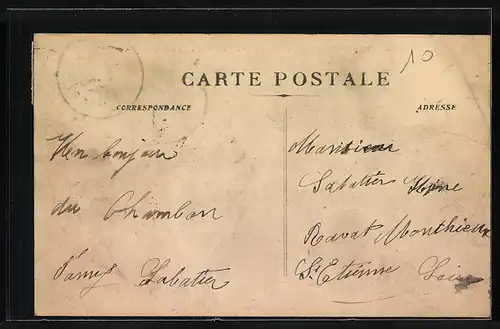 10
CARTE POSTALE
CORRESPONDANCE
ADRESSE
bonjour
du Chambon
Sabatier
Monsieur
Sabatier
Ravat Monthieux
St Etienne Loire